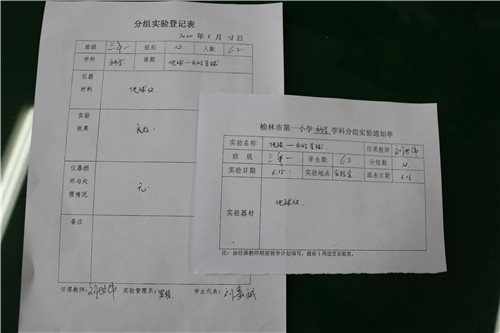 分组实验登记表
2020 年 6 月 15 日
班级 三年一 组别 12 人数 62
学科 科学 课题 地球—水的星球
仪器材料 地球仪
实验效果 良好
仪器损坏与处理情况 无
备注
任课教师： 实验管理员： 学生代表：
榆林市第一小学 科学 学科分组实验通知单
实验名称 地球—水的星球 任课教师
班 级 三年一 学生数 62 分组数 12
实验日期 6.15 实验地点 实验室 送出日期 6.13
实验器材 地球仪
注：由任课教师根据教学计划填写，提前 1 周送交实验室。